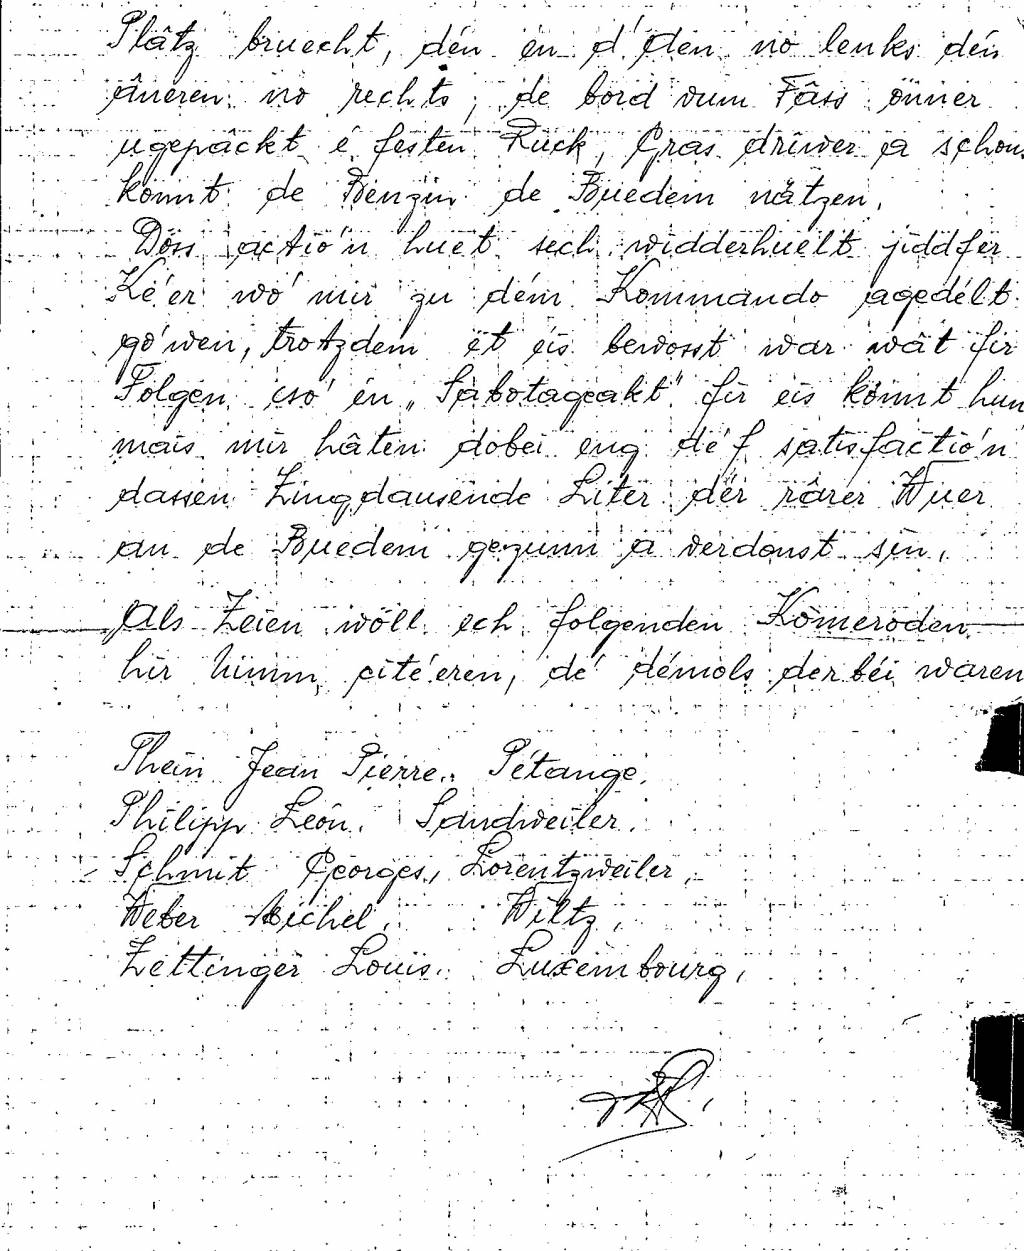 Plâtz bruecht, dén én d'Oen no lenks dén
âneren no rechts, de bord vum Fâss önner
ugepâckt é festen Ruck, Gras driwer a schon
könnt de Benzin de Buedem nätzen.
Döss actio'n huet sech widderhuelt jiddfer
Ké'er wo' mir zu dém Kommando agedélt
go'wen, trotzdem ët éis bewosst war wât fir
Folgen eso' én „Sabotageakt" fir éis könnt hun
mais mir hâten dobei eng dé'f satisfactio'n
dassen Zingdausende Liter dér rârer Wuer
an de Buedem gezunn a verdonst sin.
Als Zeien wöll ech folgenden Komeroden
hir Numm cité'eren, dé' démols derbéi waren
Thein Jean Pierre. Pétange.
Philipp Léon. Sandweiler.
Schmit Georges, Lorentzweiler.
Weber Michel. Wiltz.
Zettinger Louis. Luxembourg.